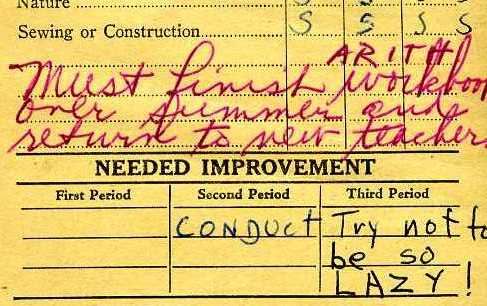 Nature S S S S
Sewing or Construction S S S S
ARITH
Must finish workboo
over summer and
return to new teachers
NEEDED IMPROVEMENT
First Period Second Period Third Period
CONDUCT Try not to
be so
LAZY!